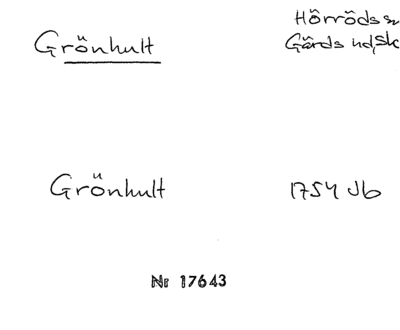 Grönhult
Hörröds sn
Gärds hd, Sk
Grönhult
1754 Jb
Nr 17643